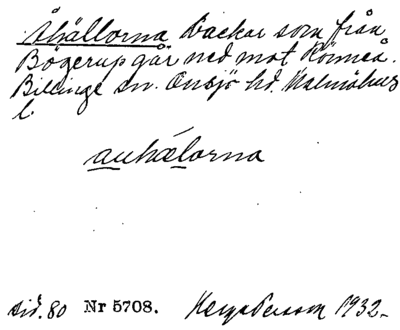 Åhällorna Backar som från
Bögerup går ned mot Rönneå.
Billinge sn. Onsjö hd. Malmöhus
l.
auhælorna
sid. 80 Nr 5708. Helga Persson 1932.